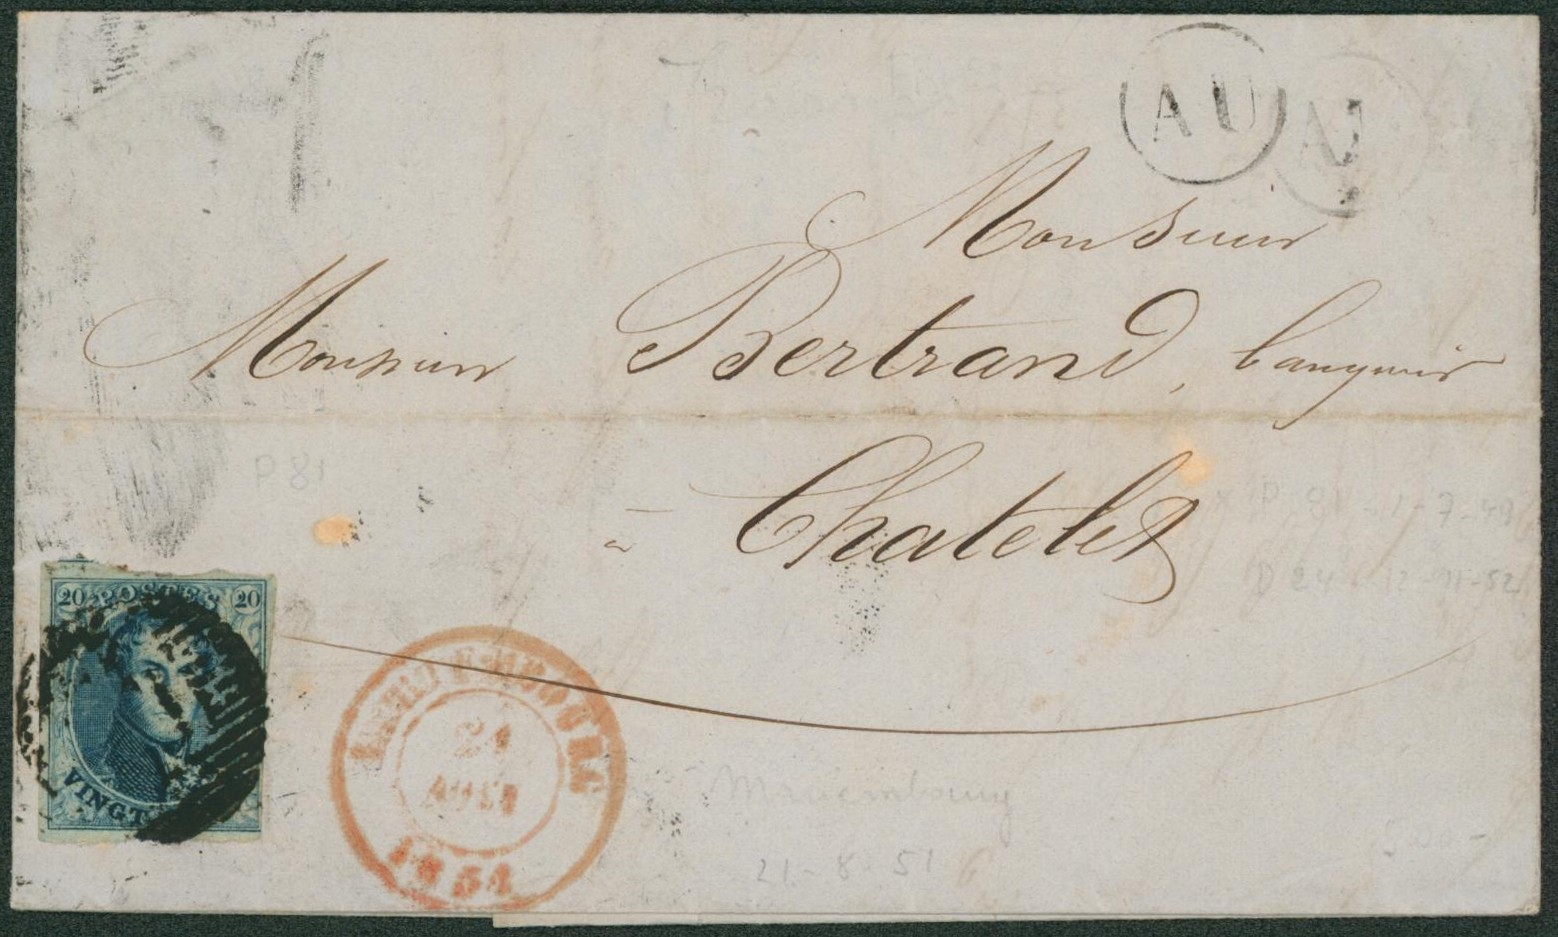 AU
A
Monsieur
Monsieur Bertrand, banquier
à Chatelet
P 81
x P 81 - 1-7-49
D 24 - 12-11-52
20 POSTES 20
VINGT
21
AOUT
1851
Mariembourg
21-8-51
500-